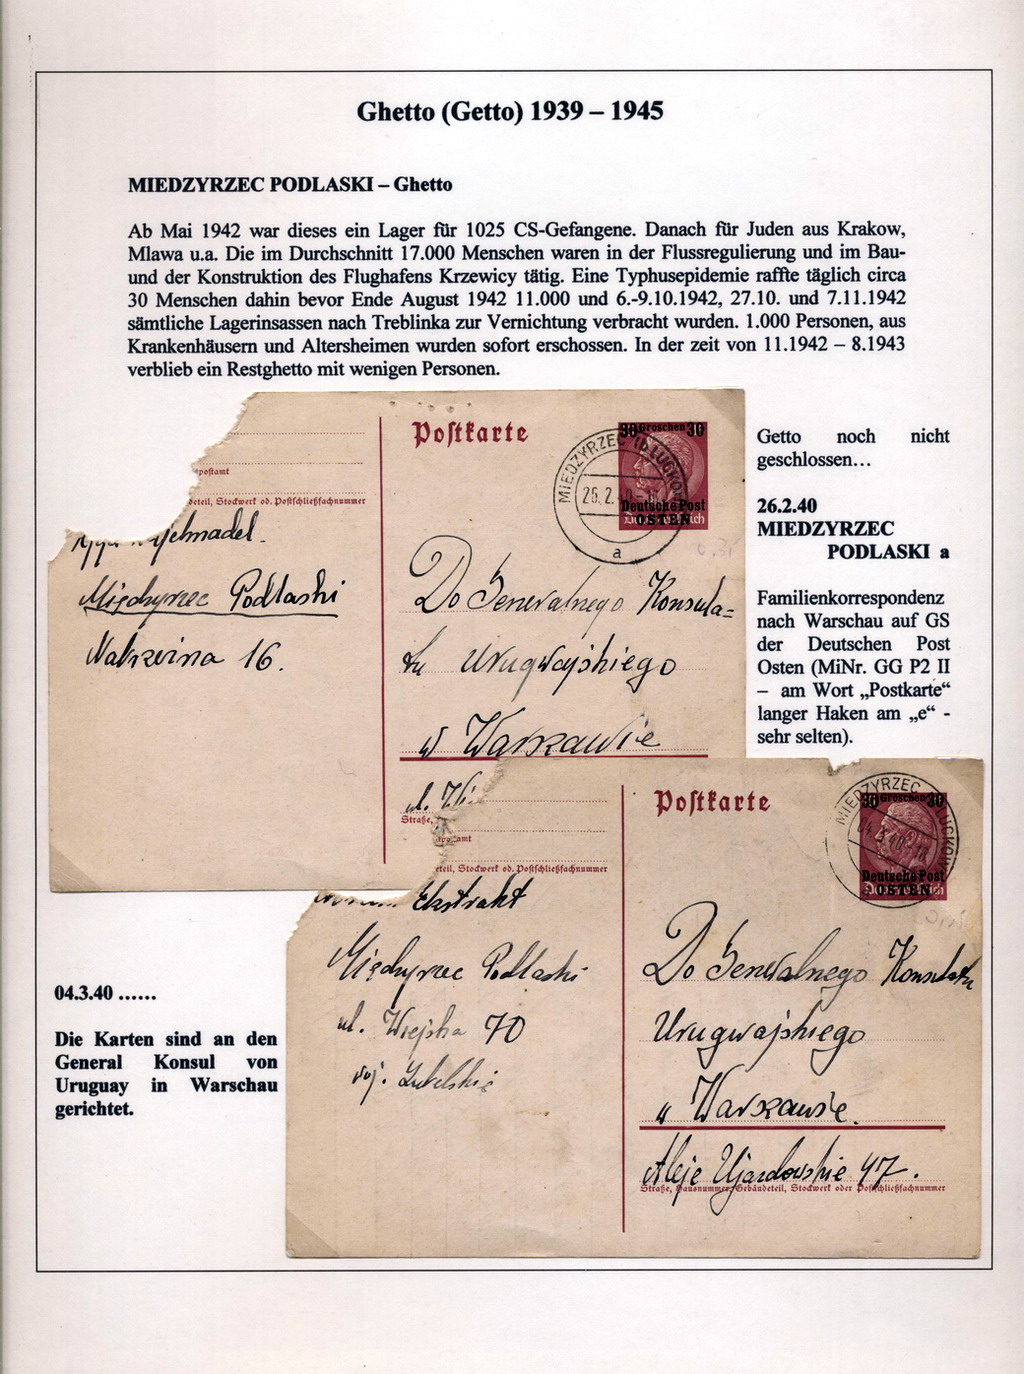 Ghetto (Getto) 1939 – 1945
MIEDZYRZEC PODLASKI – Ghetto
Ab Mai 1942 war dieses ein Lager für 1025 CS-Gefangene. Danach für Juden aus Krakow,
Mlawa u.a. Die im Durchschnitt 17.000 Menschen waren in der Flussregulierung und im Bau-
und der Konstruktion des Flughafens Krzewicy tätig. Eine Typhusepidemie raffte täglich circa
30 Menschen dahin bevor Ende August 1942 11.000 und 6.-9.10.1942, 27.10. und 7.11.1942
sämtliche Lagerinsassen nach Treblinka zur Vernichtung verbracht wurden. 1.000 Personen, aus
Krankenhäusern und Altersheimen wurden sofort erschossen. In der zeit von 11.1942 – 8.1943
verblieb ein Restghetto mit wenigen Personen.
Postkarte
30 Groschen 30
Deutsche Post
OSTEN
MIEDZYRZEC
26.2.40
a
postamt
deteil, Stockwerk od. Postschließfachnummer
Międzyrzec Podlaski
16.
Do Generalnego Konsula=
tu Urugwajskiego
w Warszawie
ul.
Straße,
Getto noch nicht
geschlossen…
26.2.40
MIEDZYRZEC
PODLASKI a
Familienkorrespondenz
nach Warschau auf GS
der Deutschen Post
Osten (MiNr. GG P2 II
– am Wort „Postkarte“
langer Haken am „e“ -
sehr selten).
Postkarte
30 Groschen 30
Deutsche Post
OSTEN
MIEDZYRZEC
postamt
deteil, Stockwerk od. Postschließfachnummer
Ekstrakt
Międzyrzec Podlaski
ul. Wiejska 70
woj. Lubelskie
Do Generalnego Konsulatu
Urugwajskiego
w Warszawie.
Aleje Ujazdowskie 47.
Straße, Hausnummer, Gebäudeteil, Stockwerk oder Postschließfachnummer
04.3.40 ......
Die Karten sind an den
General Konsul von
Uruguay in Warschau
gerichtet.